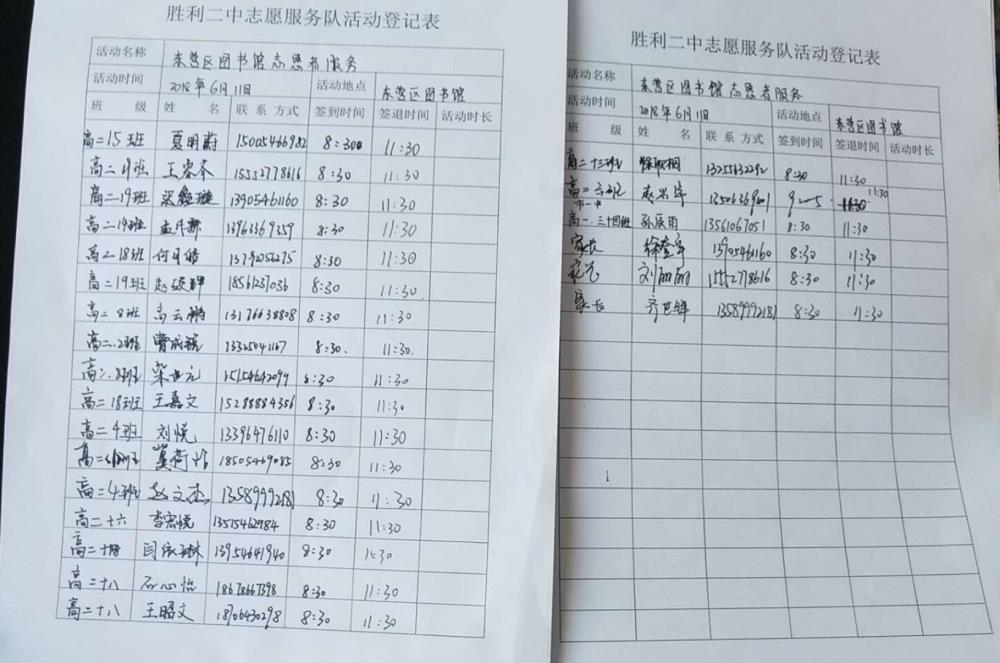 胜利二中志愿服务队活动登记表
活动名称 东营区图书馆志愿者服务
活动时间 2018年6月11日 活动地点 东营区图书馆
班 级 姓 名 联系方式 签到时间 签退时间 活动时长
高二15班 夏明蔚 15005466982 8:30 11:30
高二 班 王 15552778616 8:30 11:30
高二19班 13905461160 8:30 11:30
高二19班 孟 13963369359 8:30 11:30
高二18班 何 13792056275 8:30 11:30
高二19班 赵 18561237036 8:30 11:30
高二8班 高云鹏 13176638808 8:30 11:30
高二.2班 曹成 13325041167 8:30. 11:30.
高二. 班 15154642094 8:30 11:30
高二18班 王嘉文 15288884356 8:30 11:30
高二4班 刘悦 13396476110 8:30 11:30
高二 班 18505469085 8:30 11:30
高二4班 赵文杰 13589992181 8:30 11:30
高二十六 李宏悦 13515462984 8:30 11:30
高二十 闫 琳 13954641940 8:30 11:30
高二十八 石心怡 18678667398 8:30 11:30
高二十八 王昭文 18706430298 8:30 11:30
胜利二中志愿服务队活动登记表
活动名称 东营区图书馆志愿者服务
活动时间 2018年6月11日 活动地点 东营区图书馆
班 级 姓 名 联系方式 签到时间 签退时间 活动时长
高二十三班 徐 13255632292 8:30 11:30
高二 赵 11:30
高一.三十四班 孙辰雨 13561067051 8:30 11:30
家长 徐奎军 13905461160 8:30 11:30
家长 刘丽丽 15552778616 8:30 11:30
家长 齐 13589992181 8:30 11:30